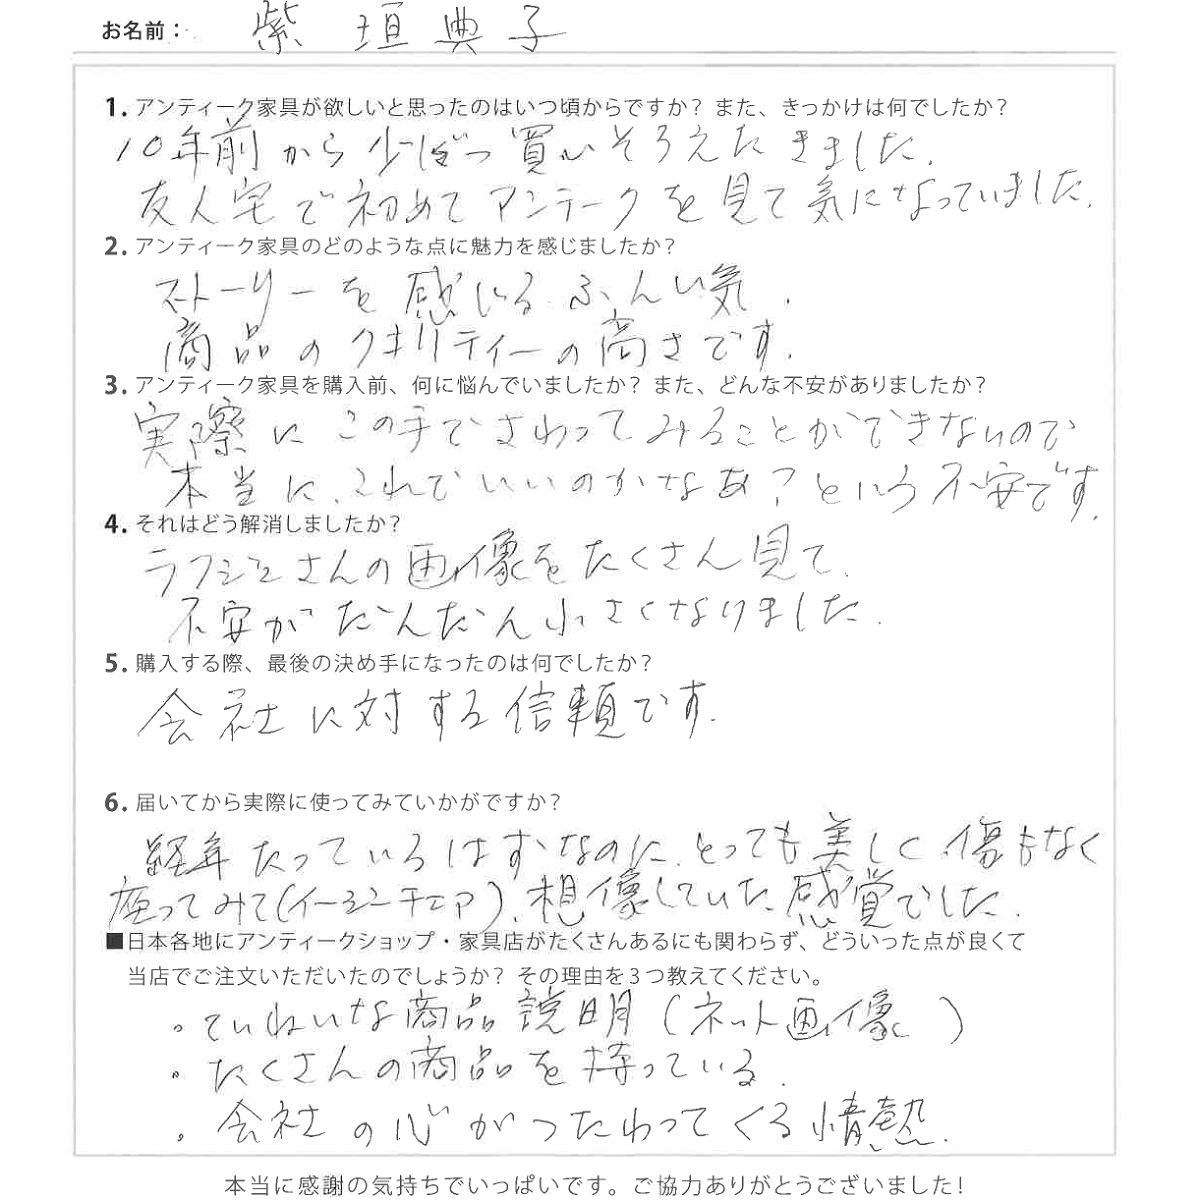 お名前： 紫垣典子
1. アンティーク家具が欲しいと思ったのはいつ頃からですか？ また、きっかけは何でしたか？
10年前から少しずつ買いそろえたきました.
友人宅で初めてアンテークを見て気になっていました.
2. アンティーク家具のどのような点に魅力を感じましたか？
ストーリーを感じる.ふんい気.
商品のクオリティーの高さです.
3. アンティーク家具を購入前、何に悩んでいましたか？ また、どんな不安がありましたか？
実際にこの手でさわってみることができないので
本当に、これでいいのかなあ？という不安です.
4. それはどう解消しましたか？
ラフジュさんの画像をたくさん見て.
不安がだんだん小さくなりました.
5. 購入する際、最後の決め手になったのは何でしたか？
会社に対する信頼です.
6. 届いてから実際に使ってみていかがですか？
経年たっているはずなのに、とっても美しく、傷もなく
座ってみて(イージーチェア)、想像していた感覚でした.
■日本各地にアンティークショップ・家具店がたくさんあるにも関わらず、どういった点が良くて
当店でご注文いただいたのでしょうか？ その理由を３つ教えてください。
。ていねいな商品説明(ネット画像)
。たくさんの商品を持っている.
。会社の心がつたわってくる情熱.
本当に感謝の気持ちでいっぱいです。ご協力ありがとうございました！